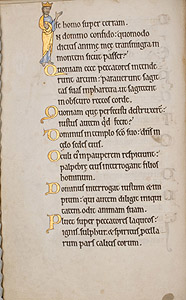 se homo super terram.
IN domino confido: quomodo
dicitis anime mee transmigra in
montem sicut passer?
Quoniam ecce peccatores intende
runt arcum: paraverunt sagit
tas suas in pharetra: ut sagittent
in obscuro rectos corde.
Quoniam que perfecisti destruxerunt:
iustus autem quid fecit?
Dominus in templo sco suo: dominus in
celo sedes eius.
Oculi eius in pauperem respiciunt:
palpebre eius interrogant filios
hominum.
Dominus interrogat iustum & im
pium: qui autem diligit iniqui
tatem odit animam suam.
Pluet super peccatores laqueos:
ignis. sulphur. & spiritus procella
rum pars calicis eorum.